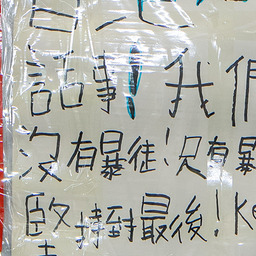 話事!我們
沒有暴徒!只有暴
堅持到最後!Ke